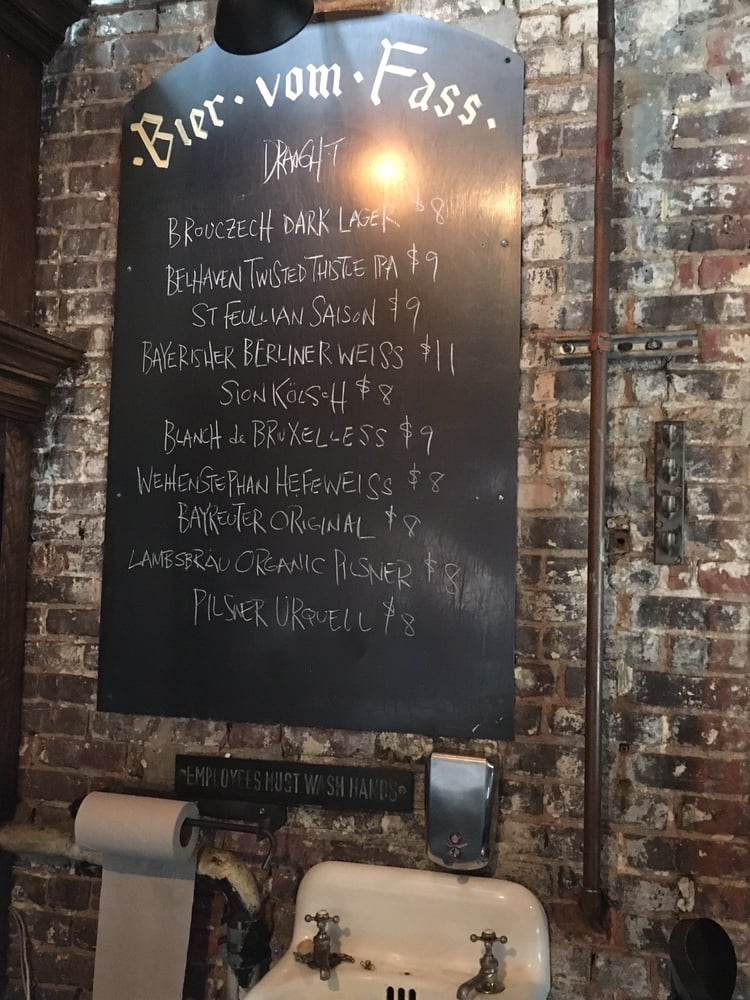 ·Bier·vom·Fass·
DRAUGHT
BROUCZECH DARK LAGER $8
BELHAVEN TWISTED THISTLE IPA $9
ST FEULLIAN SAISON $9
BAYERISHER BERLINER WEISS $11
SION KÖLSCH $8
BLANCH de BRUXELLESS $9
WEIHENSTEPHAN HEFEWEISS $8
BAYREUTER ORIGINAL $8
LAMBSBRÄU ORGANIC PILSNER $8
PILSNER URQUELL $8
EMPLOYEES MUST WASH HANDS